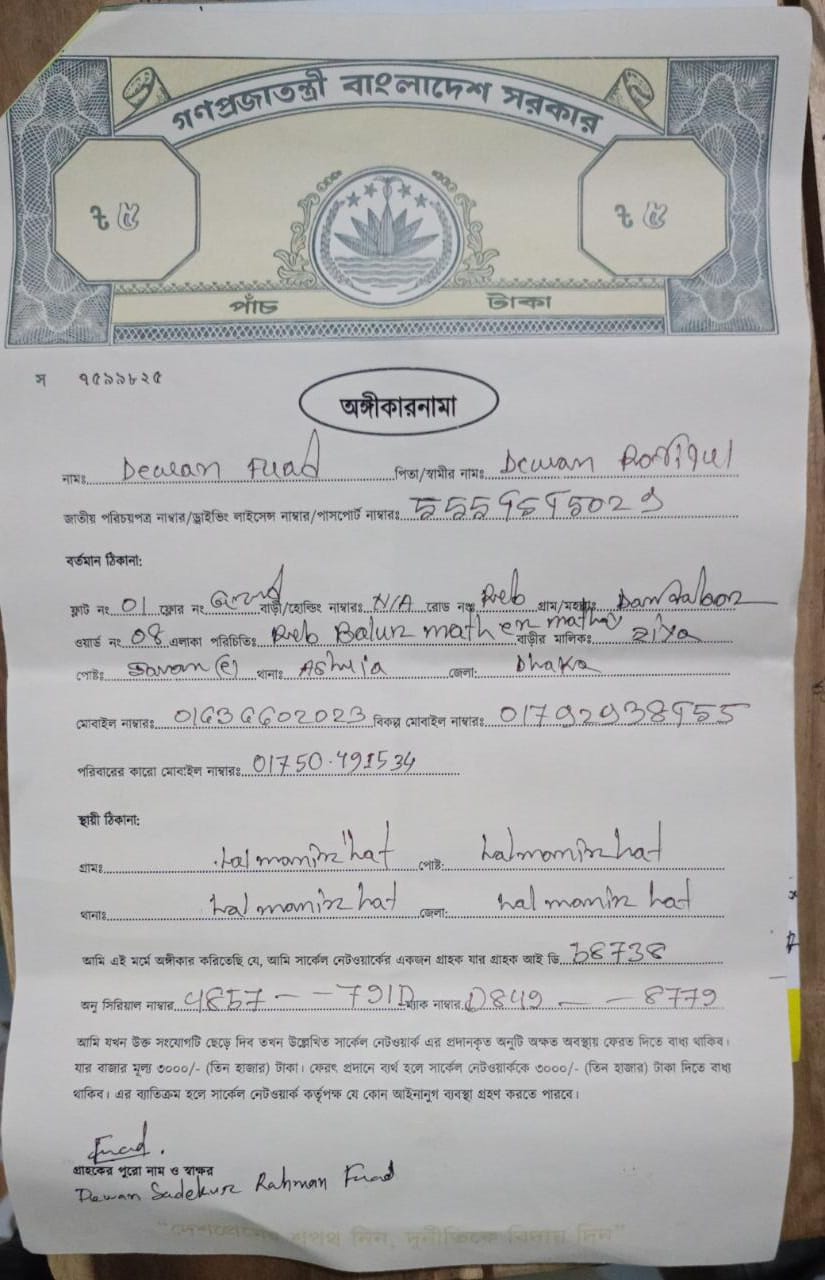 গণপ্রজাতন্ত্রী বাংলাদেশ সরকার
৳ ৫ ৳ ৫
পাঁচ টাকা
স ৭৫৯৯৮২৫
অঙ্গীকারনামা
নামঃ Dewan Fuad পিতা/স্বামীর নামঃ Dewan Rofiqul
জাতীয় পরিচয়পত্র নাম্বার/ড্রাইভিং লাইসেন্স নাম্বার/পাসপোর্ট নাম্বারঃ
বর্তমান ঠিকানা:
ফ্লাট নং 01 ফ্লোর নং বাড়ী/হোল্ডিং নাম্বারঃ N/A রোড নঃ গ্রাম/মহল্লাঃ
ওয়ার্ড নং 08 এলাকা পরিচিতিঃ Balur math বাড়ীর মালিকঃ Ziya
পোষ্টঃ Savar থানাঃ Ashulia জেলা: Dhaka
মোবাইল নাম্বারঃ বিকল্প মোবাইল নাম্বারঃ
পরিবারের কারো মোবাইল নাম্বারঃ 01750-491534
স্থায়ী ঠিকানা:
গ্রামঃ Lalmonirhat পোষ্ট: Lalmonirhat
থানাঃ Lalmonirhat জেলা: Lalmonirhat
আমি এই মর্মে অঙ্গীকার করিতেছি যে, আমি সার্কেল নেটওয়ার্কের একজন গ্রাহক যার গ্রাহক আই ডি
অনু সিরিয়াল নাম্বার 4857 - - 791D ম্যাক নাম্বার D849 - - 8779
আমি যখন উক্ত সংযোগটি ছেড়ে দিব তখন উল্লেখিত সার্কেল নেটওয়ার্ক এর প্রদানকৃত অনুটি অক্ষত অবস্থায় ফেরত দিতে বাধ্য থাকিব।
যার বাজার মূল্য ৩০০০/- (তিন হাজার) টাকা। ফেরৎ প্রদানে ব্যর্থ হলে সার্কেল নেটওয়ার্ককে ৩০০০/- (তিন হাজার) টাকা দিতে বাধ্য
থাকিব। এর ব্যতিক্রম হলে সার্কেল নেটওয়ার্ক কর্তৃপক্ষ যে কোন আইনানুগ ব্যবস্থা গ্রহণ করতে পারবে।
Fuad.
গ্রাহকের পুরো নাম ও স্বাক্ষর
Dewan Sadekur Rahman Fuad
"দেশপ্রেমের শপথ নিন, দুর্নীতিকে বিদায় দিন"